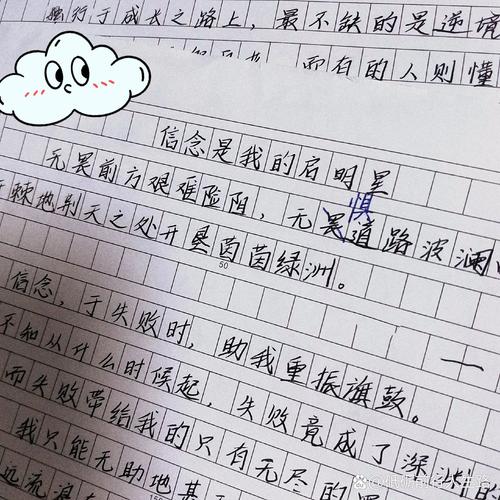 独行于成长之路上，最不缺的是逆境
而有的人则懂
信念是我的启明星
无畏前方艰难险阻，无惧道路波澜
棘地别天之处开垦茵茵绿洲。
50
信念，于失败时，助我重振旗鼓。
不知从什么时候起，失败竟成了深
而失败带给我的只有无尽的
我只能无助地
远流浪